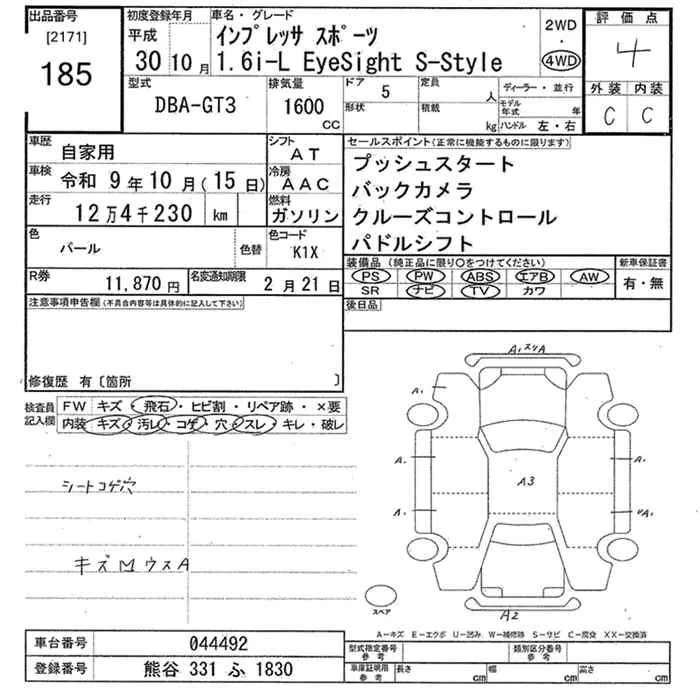 出品番号
[2171]
185
初度登録年月
平成
30 10 月
車名・グレード
インプレッサ スポーツ
1.6i-L EyeSight S-Style
2WD
・
4WD
評価点
4
外装 内装
C C
型式
DBA-GT3
排気量
1600
CC
ドア 5
形状
定員 人
積載 kg
ディーラー・並行
モデル年式 年
ハンドル 左・右
車歴 自家用
シフト AT
車検 令和 9 年 10 月 ( 15 日)
冷房 AAC
走行 12 万 4 千 230 km
燃料 ガソリン
色 パール 色替
色コード K1X
R券 11,870 円
名変通知期限 2 月 21 日
セールスポイント(正常に機能するものに限ります)
プッシュスタート
バックカメラ
クルーズコントロール
パドルシフト
装備品(純正品に限り○をつけてください)
PS PW ABS エアB AW
SR ナビ TV カワ
新車保証書
有・無
後日品
注意事項申告欄(不具合内容等は具体的に記入して下さい)
修復歴 有〔箇所 〕
検査員記入欄
FW キズ・飛石・ヒビ割・リペア跡・×要
内装 キズ・汚レ・コゲ・穴・スレ・キレ・破レ
シートコゲ穴
キズMウスA
A1スリA
A1
A1
A1
A3
A1
A2
スペア
A-キズ E-エクボ U-凹み W-補修跡 S-サビ C-腐食 XX-交換済
車台番号 044492
登録番号 熊谷 331 ふ 1830
型式指定番号 参考
類別区分番号 参考
車庫証明用 参考
長さ cm 幅 cm 高さ cm